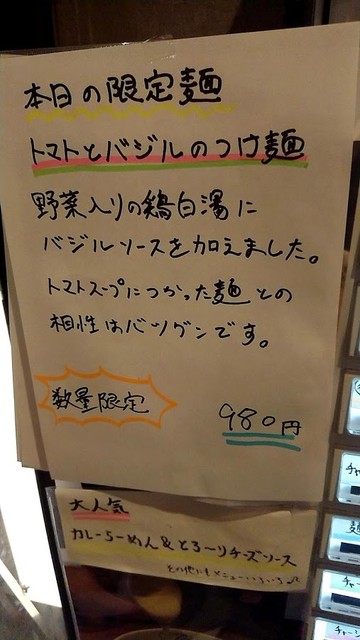 本日の限定麺
トマトとバジルのつけ麺
野菜入りの鶏白湯に
バジルソースを加えました。
トマトスープにつかった麺との
相性はバツグンです。
数量限定
980円
大人気
カレーらーめん&とろ〜りチーズソース
その他にもメニューいろいろ♫